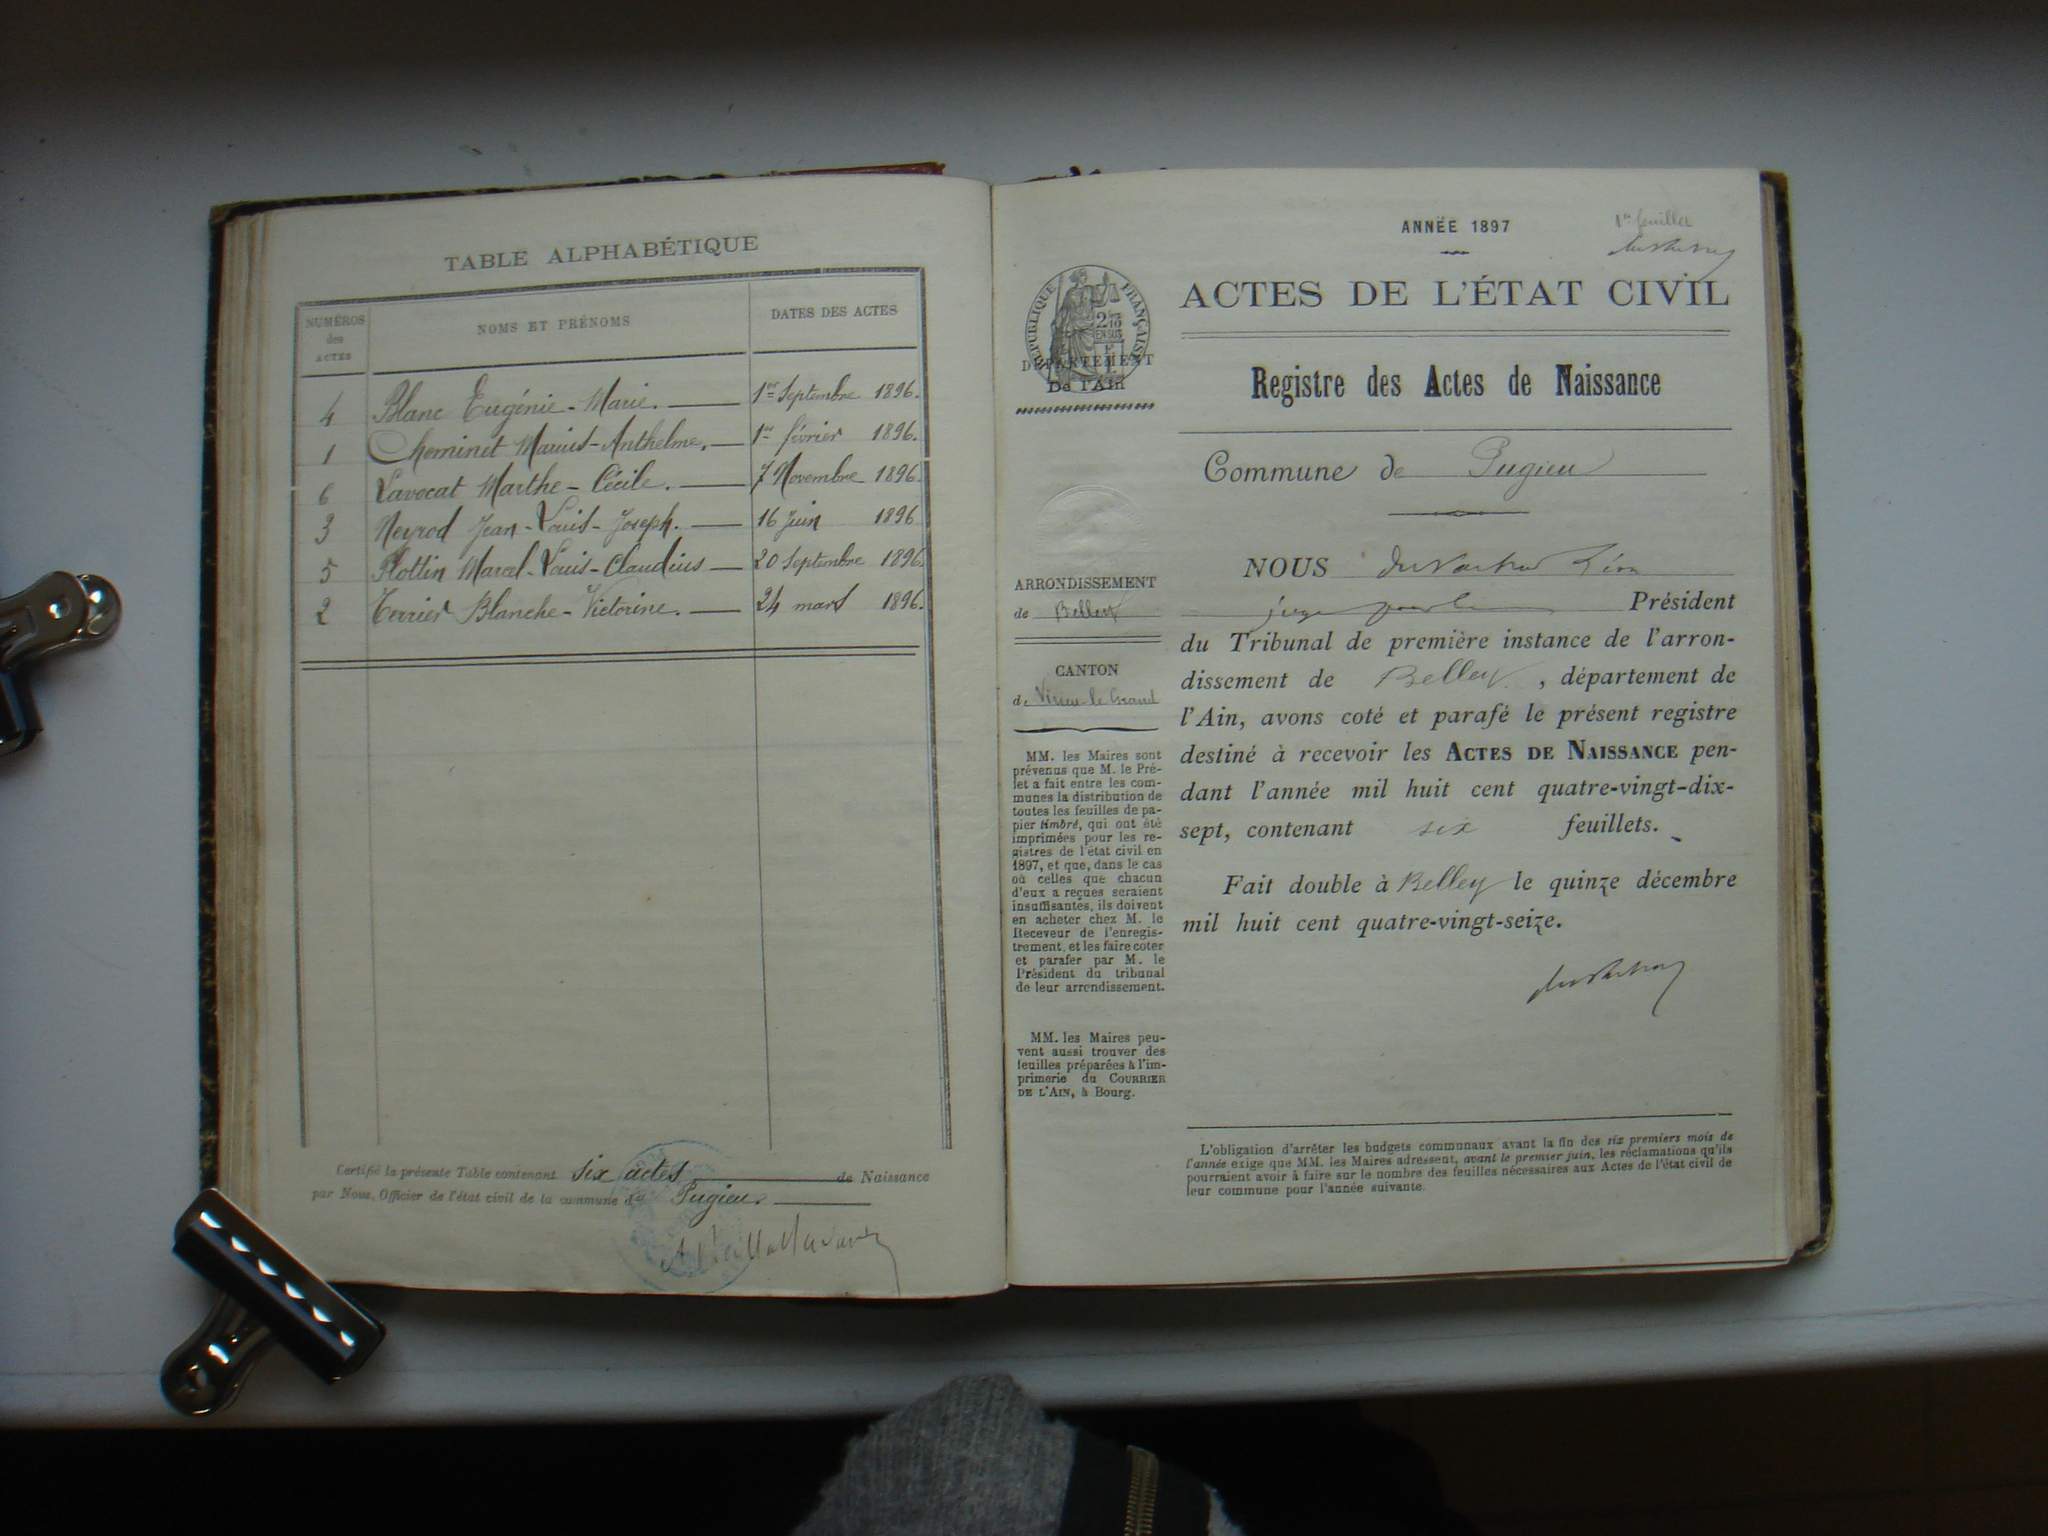 TABLE ALPHABÉTIQUE
NUMÉROS des ACTES
NOMS ET PRÉNOMS
DATES DES ACTES
4 Blanc Eugénie-Marie. 1er Septembre 1896.
1 Cheminet Marius-Anthelme. 1er février 1896.
6 Lavocat Marthe-Cécile. 7 Novembre 1896.
3 Neyrod Jean-Louis-Joseph. 16 Juin 1896
5 Plottin Marcel-Louis-Claudius 20 Septembre 1896.
2 Terrier Blanche-Victorine. 24 mars 1896.
Certifié la présente Table contenant six actes de Naissance
par Nous, Officier de l'état civil de la commune de Pugieu.
ANNÉE 1897
1er feuillet
RÉPUBLIQUE FRANÇAISE
2/10 EN SUS
DÉPARTEMENT
De l'Ain
ACTES DE L'ÉTAT CIVIL
Registre des Actes de Naissance
Commune de Pugieu
ARRONDISSEMENT
de Belley
CANTON
de Virieu-le-Grand
MM. les Maires sont
prévenus que M. le Pré-
fet a fait entre les com-
munes la distribution de
toutes les feuilles de pa-
pier timbré, qui ont été
imprimées pour les re-
gistres de l'état civil en
1897, et que, dans le cas
où celles que chacun
d'eux a reçues seraient
insuffisantes, ils doivent
en acheter chez M. le
Receveur de l'enregis-
trement, et les faire coter
et parafer par M. le
Président du tribunal
de leur arrondissement.
MM. les Maires peu-
vent aussi trouver des
feuilles préparées à l'im-
primerie du COURRIER
DE L'AIN, à Bourg.
NOUS
Président
du Tribunal de première instance de l'arron-
dissement de Belley, département de
l'Ain, avons coté et parafé le présent registre
destiné à recevoir les ACTES DE NAISSANCE pen-
dant l'année mil huit cent quatre-vingt-dix-
sept, contenant six feuillets.
Fait double à Belley le quinze décembre
mil huit cent quatre-vingt-seize.
L'obligation d'arrêter les budgets communaux avant la fin des six premiers mois de
l'année exige que MM. les Maires adressent, avant le premier juin, les réclamations qu'ils
pourraient avoir à faire sur le nombre des feuilles nécessaires aux Actes de l'état civil de
leur commune pour l'année suivante.